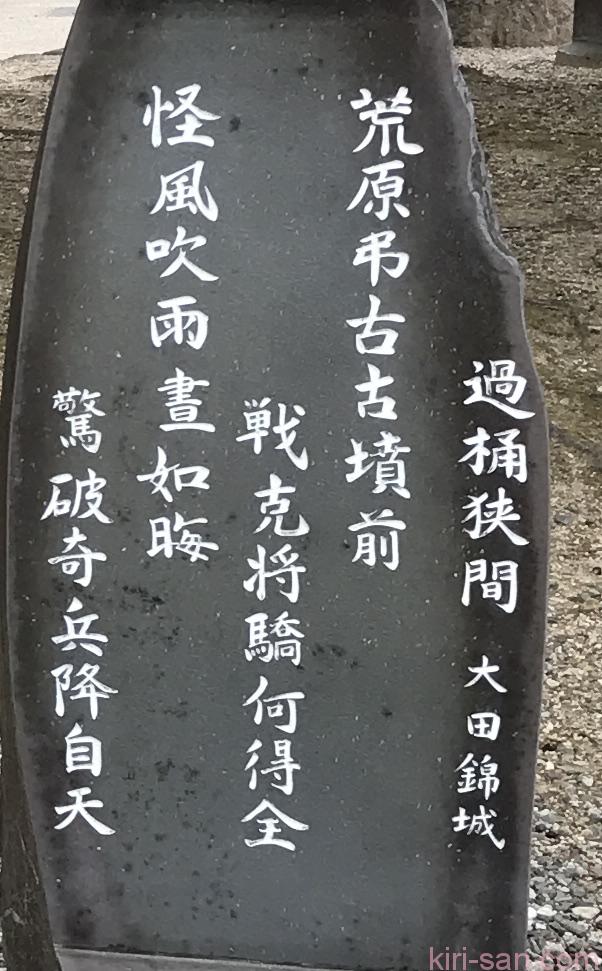 過桶狭間 大田錦城
荒原弔古古墳前
戦克将驕何得全
怪風吹雨晝如晦
驚破奇兵降自天
kiri-san.com